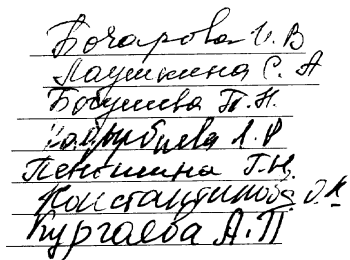 Бочарова И. В
Лаушкина С. А
Бобушева Т. Н.
А. Р
Пенькина Г. Н.
Константинова О. К
Кургаева А. П